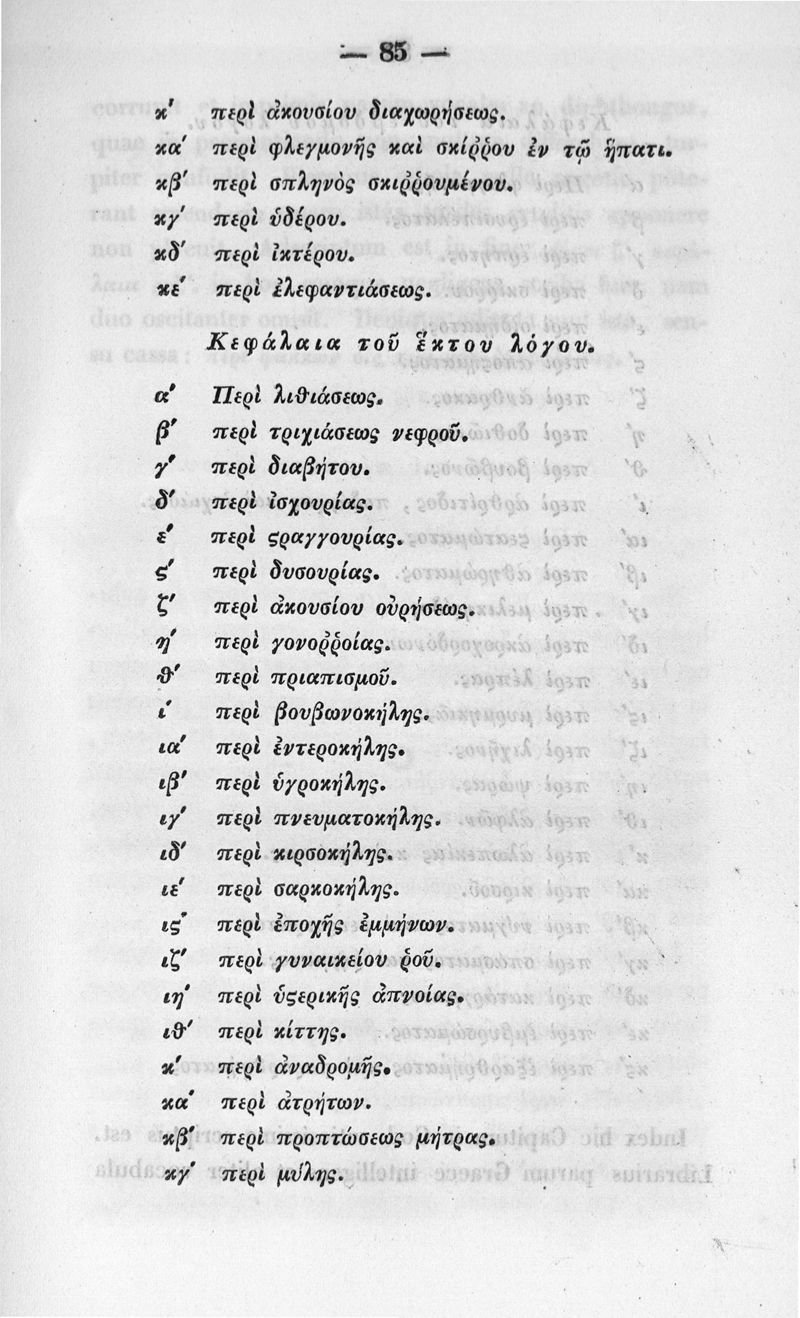 — 85 —
κʹ περὶ ἀκουσίου διαχωρήσεως.
καʹ περὶ φλεγμονῆς καὶ σκίῤῥου ἐν τῷ ἥπατι.
κβʹ περὶ σπληνὸς σκιῤῥουμένου.
κγʹ περὶ ὑδέρου.
κδʹ περὶ ἰκτέρου.
κεʹ περὶ ἐλεφαντιάσεως.
Κεφάλαια τοῦ ἕκτου λόγου.
αʹ Περὶ λιθιάσεως.
βʹ περὶ τριχιάσεως νεφροῦ.
γʹ περὶ διαβήτου.
δʹ περὶ ἰσχουρίας.
εʹ περὶ ϛραγγουρίας.
ϛʹ περὶ δυσουρίας.
ζʹ περὶ ἀκουσίου οὐρήσεως.
ηʹ περὶ γονοῤῥοίας.
θʹ περὶ πριαπισμοῦ.
ιʹ περὶ βουβωνοκήλης.
ιαʹ περὶ ἐντεροκήλης.
ιβʹ περὶ ὑγροκήλης.
ιγʹ περὶ πνευματοκήλης.
ιδʹ περὶ κιρσοκήλης.
ιεʹ περὶ σαρκοκήλης.
ιϛʹ περὶ ἐποχῆς ἐμμήνων.
ιζʹ περὶ γυναικείου ῥοῦ.
ιηʹ περὶ ὑϛερικῆς ἀπνοίας.
ιθʹ περὶ κίττης.
κʹ περὶ ἀναδρομῆς.
καʹ περὶ ἀτρήτων.
κβʹ περὶ προπτώσεως μήτρας.
κγʹ περὶ μύλης.